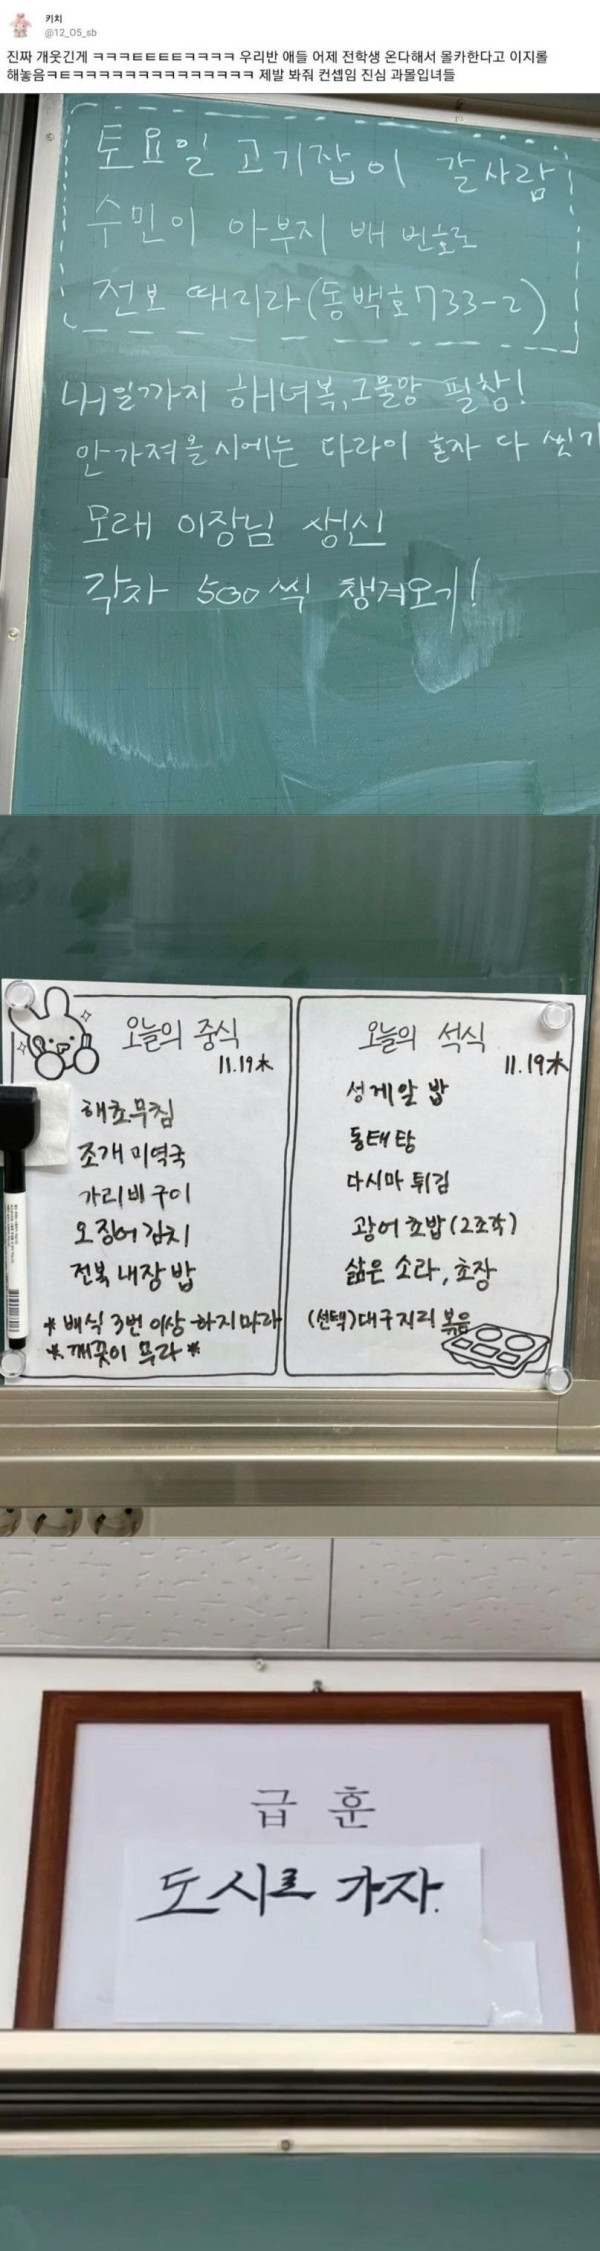 키치
@12_05_sb
진짜 개웃긴게 ㅋㅋㅋㅌㅌㅌㅌㅋㅋㅋㅋ 우리반 애들 어제 전학생 온다해서 몰카한다고 이지롤
해놓음ㅋㅌㅋㅋㅋㅋㅋㅋㅋㅋㅋㅋㅋㅋㅋㅋ 제발 봐줘 컨셉임 진심 과몰입녀들
토요일 고기잡이 갈사람
수민이 아부지 배 번호로
전보 때리라(동백호733-2)
내일까지 해녀복,그물망 필참!
안가져올시에는 다라이 혼자 다 씻기
모레 이장님 생신
각자 500씩 챙겨오기!
오늘의 중식
11.19木
해초무침
조개미역국
가리비구이
오징어김치
전복내장밥
*배식 3번이상 하지마라
*깨끗이 무라*
오늘의 석식
11.19木
성게알밥
동태탕
다시마 튀김
광어초밥(2조각)
삶은 소라, 초장
(선택)대구지리볶음
급훈
도시로 가자.